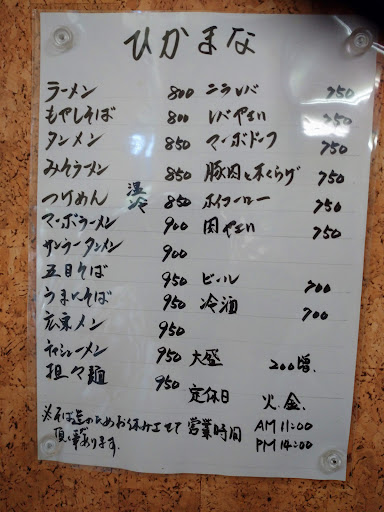 ひかまな
ラーメン 800
もやしそば 800
タンメン 850
みそラーメン 850
つけめん 温 冷 850
マーボラーメン 900
サンラータンメン 900
五目そば 950
うまにそば 950
広東メン 950
チャーシューメン
担々麺 950
ニラレバ 750
レバやさい 750
マーボドーフ 750
豚肉と木くらげ 750
ホイコーロー 750
肉やさい 750
ビール 700
冷酒 700
大盛 200増
定休日 火.金.
営業時間 AM 11:00
PM 14:00
※そば造のためお休みさせて
頂く事あります.